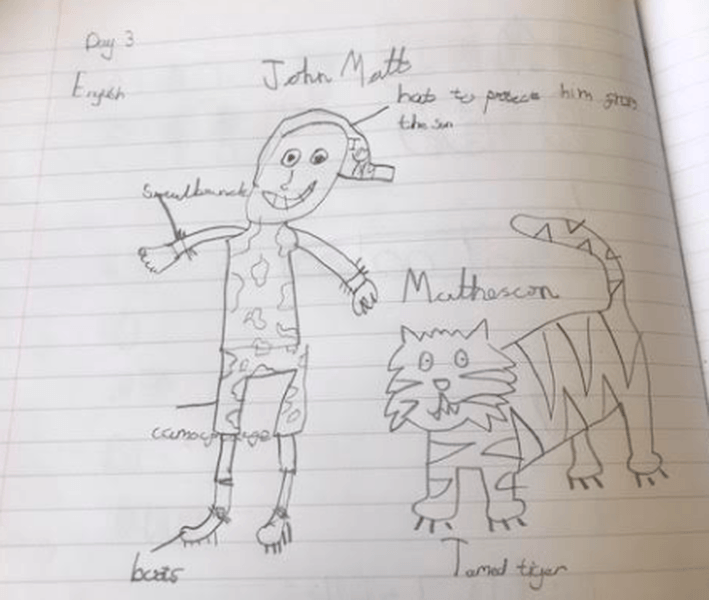 Day 3
English
John Matt
hat to protece him from
the sun
Mathescon
camoflage
boots
Tamed tiger